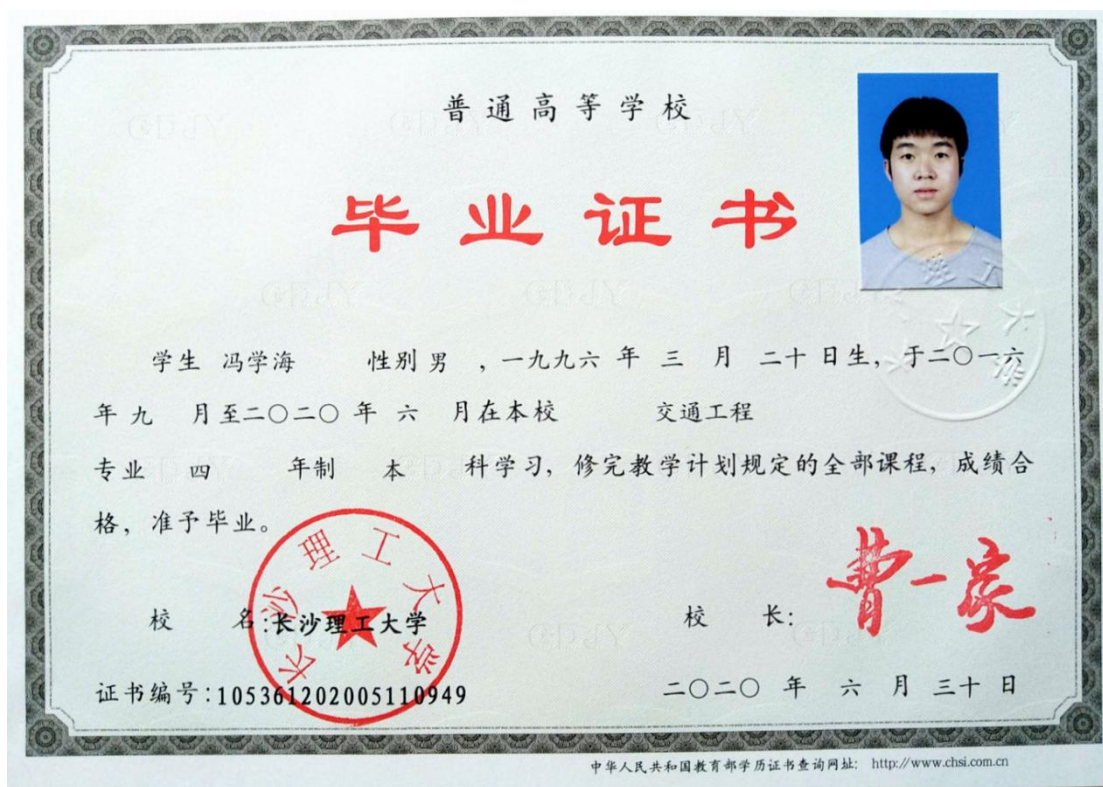 普通高等学校
毕业证书
学生 冯学海 性别 男 ，一九九六 年 三 月 二十 日生，于二〇一六
年 九 月至二〇二〇 年 六 月在本校 交通工程
专业 四 年制 本 科学习，修完教学计划规定的全部课程，成绩合
格，准予毕业。
长沙理工大学
校 名:长沙理工大学
校 长:
曹一家
证书编号:105361202005110949
二〇二〇 年 六 月 三十 日
中华人民共和国教育部学历证书查询网址: http://www.chsi.com.cn